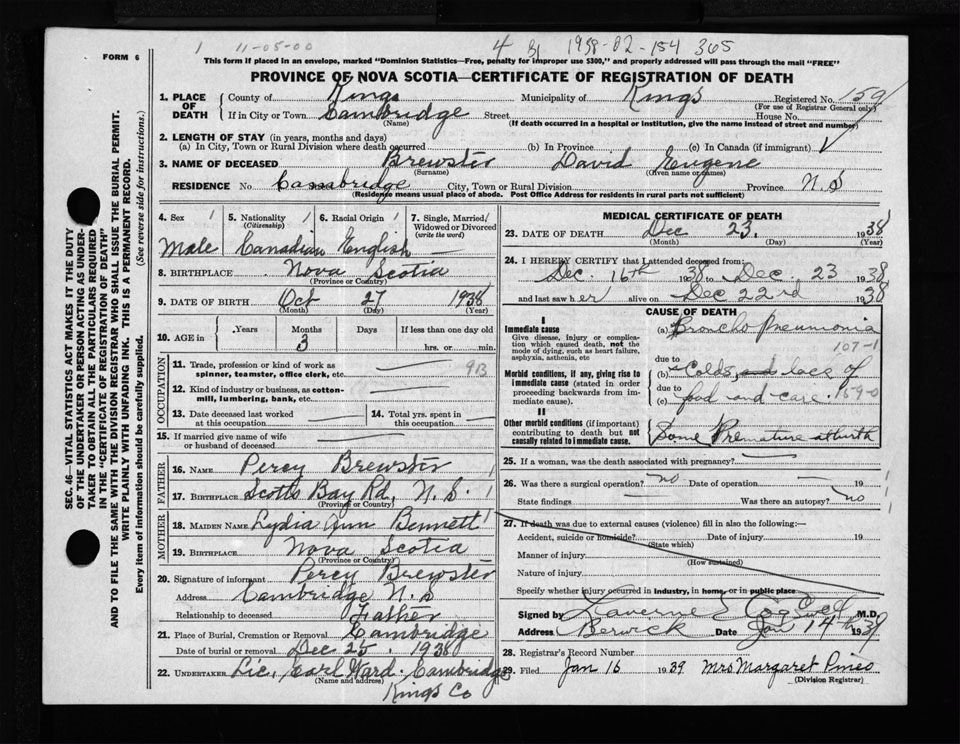 1 11-05-00 4 1938-02-154 365
FORM 6
This form if placed in an envelope, marked "Dominion Statistics—Free, penalty for improper use $300," and properly addressed will pass through the mail "FREE"
PROVINCE OF NOVA SCOTIA—CERTIFICATE OF REGISTRATION OF DEATH
SEC. 46—VITAL STATISTICS ACT MAKES IT THE DUTY
OF THE UNDERTAKER OR PERSON ACTING AS UNDER-
TAKER TO OBTAIN ALL THE PARTICULARS REQUIRED
IN THE "CERTIFICATE OF REGISTRATION OF DEATH"
AND TO FILE THE SAME WITH THE DIVISION REGISTRAR WHO SHALL ISSUE THE BURIAL PERMIT.
WRITE PLAINLY WITH UNFADING INK. THIS IS A PERMANENT RECORD.
Every item of information should be carefully supplied. (See reverse side for instructions.)
1. PLACE OF DEATH County of Kings Municipality of Kings Registered No. 159
(For use of Registrar General only)
If in City or Town Cambridge Street House No.
(Name) (If death occurred in a hospital or institution, give the name instead of street and number)
2. LENGTH OF STAY (in years, months and days)
(a) In City, Town or Rural Division where death occurred (b) In Province (c) In Canada (if immigrant)
3. NAME OF DECEASED Brewster David Eugene
(Surname) (Given name or names)
RESIDENCE No. Cambridge City, Town or Rural Division Province N.S
(Residence means usual place of abode. Post Office Address for residents in rural parts not sufficient)
4. Sex 1 5. Nationality 1 6. Racial Origin 1 7. Single, Married/
(Citizenship) Widowed or Divorced
(write the word)
Male Canadian English —
8. BIRTHPLACE Nova Scotia
(Province or Country)
9. DATE OF BIRTH Oct 27 1938
(Month) (Day) (Year)
10. AGE in Years Months Days If less than one day old
3 hrs. or min.
OCCUPATION
11. Trade, profession or kind of work as
spinner, teamster, office clerk, etc. — 913
12. Kind of industry or business, as cotton-
mill, lumbering, bank, etc.
13. Date deceased last worked
at this occupation
14. Total yrs. spent in
this occupation
15. If married give name of wife
or husband of deceased
FATHER
16. NAME Percy Brewster
17. BIRTHPLACE Scotts Bay Rd, N.S. 1
(Province or Country)
MOTHER
18. MAIDEN NAME Lydia Ann Bennett 1
19. BIRTHPLACE Nova Scotia
(Province or Country)
20. Signature of informant Percy Brewster
Address Cambridge N.S
Relationship to deceased Father
21. Place of Burial, Cremation or Removal Cambridge
Date of burial or removal Dec 25, 1938
22. UNDERTAKER Lic, Earl Ward. Cambridge
(Name and address) Kings Co
MEDICAL CERTIFICATE OF DEATH
23. DATE OF DEATH Dec 23. 1938
(Month) (Day) (Year)
24. I HEREBY CERTIFY that I attended deceased from:
Dec. 16th 1938 to Dec. 23 1938
and last saw her alive on Dec 22rd 1938
CAUSE OF DEATH
I
Immediate cause
Give disease, injury or complica-
tion which caused death, not the
mode of dying, such as heart failure,
asphyxia, asthenia, etc
(a) Broncho Pneumonia
107-1
due to
Morbid conditions, if any, giving rise to
immediate cause (stated in order
proceeding backwards from im-
mediate cause).
(b) Colds, lack of
due to
(c) food and care. 159-0
II
Other morbid conditions (if important)
contributing to death but not
causally related to immediate cause.
Some Premature at birth
25. If a woman, was the death associated with pregnancy? —
26. Was there a surgical operation? no Date of operation — 19
State findings — Was there an autopsy? no
27. If death was due to external causes (violence) fill in also the following:—
Accident, suicide or homicide? Date of injury 19
(State which)
Manner of injury
(How sustained)
Nature of injury
Specify whether injury occurred in industry, in home, or in public place
Signed by Laverne Cogswell M.D.
Address Berwick Date Jan 14th 1939
28. Registrar's Record Number
29. Filed Jan 16 1939 Mrs Margaret Pineo
(Division Registrar)